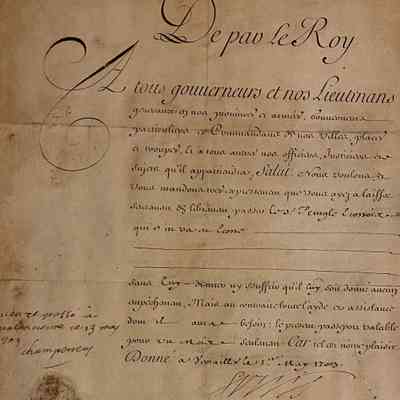 De par le Roy
A tous gouuerneurs et nos Lieutenans
generaux en nos prouinces et armées, gouuerneurs
particuliers et Commandans de nos villes, places
et trouppes, et a tous autres nos officiers, Justiciers et
sujets qu'il appartiendra, Salut. Nous voulons et
vous mandons tres expressement que vous ayez a laisser
seurement et librement passer le Sr
qui s'en va
sans luy donner ny souffrir qu'il luy soit donné aucun
empeschement, Mais au contraire toute l'ayde et assistance
dont il aura besoin; le present passeport valable
pour un Mois seulement Car tel est nostre plaisir
Donné à Versailles le 1er May 1703
13 may
1703
champeron